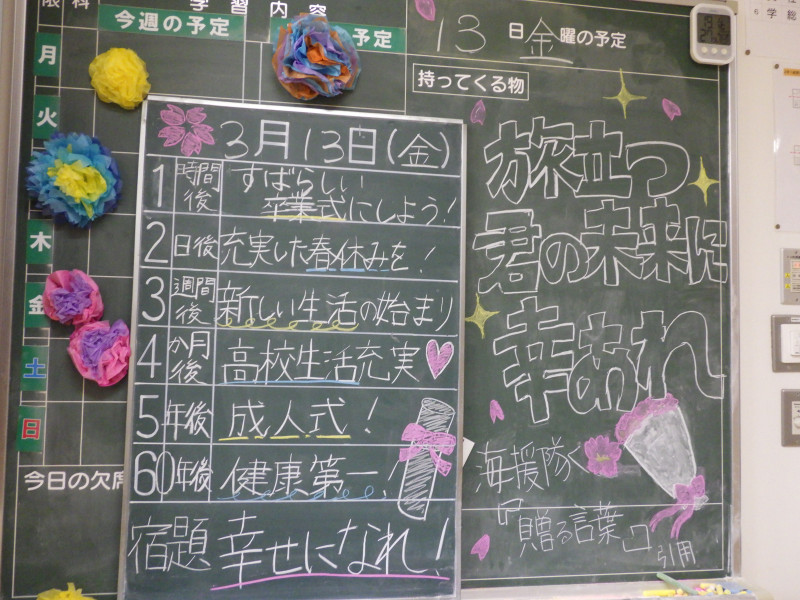 学習内容
今週の予定
予定
月
火
木
金
土
日
今日の欠席
13日金曜の予定
持ってくる物
3月13日(金)
1時間後 すばらしい
卒業式にしよう!
2日後 充実した春休みを!
3週間後 新しい生活の始まり
4か月後 高校生活充実
5年後 成人式!
60年後 健康第一!
宿題 幸せになれ!
旅立つ
君の未来に
幸あれ
海援隊
『贈る言葉』
引用